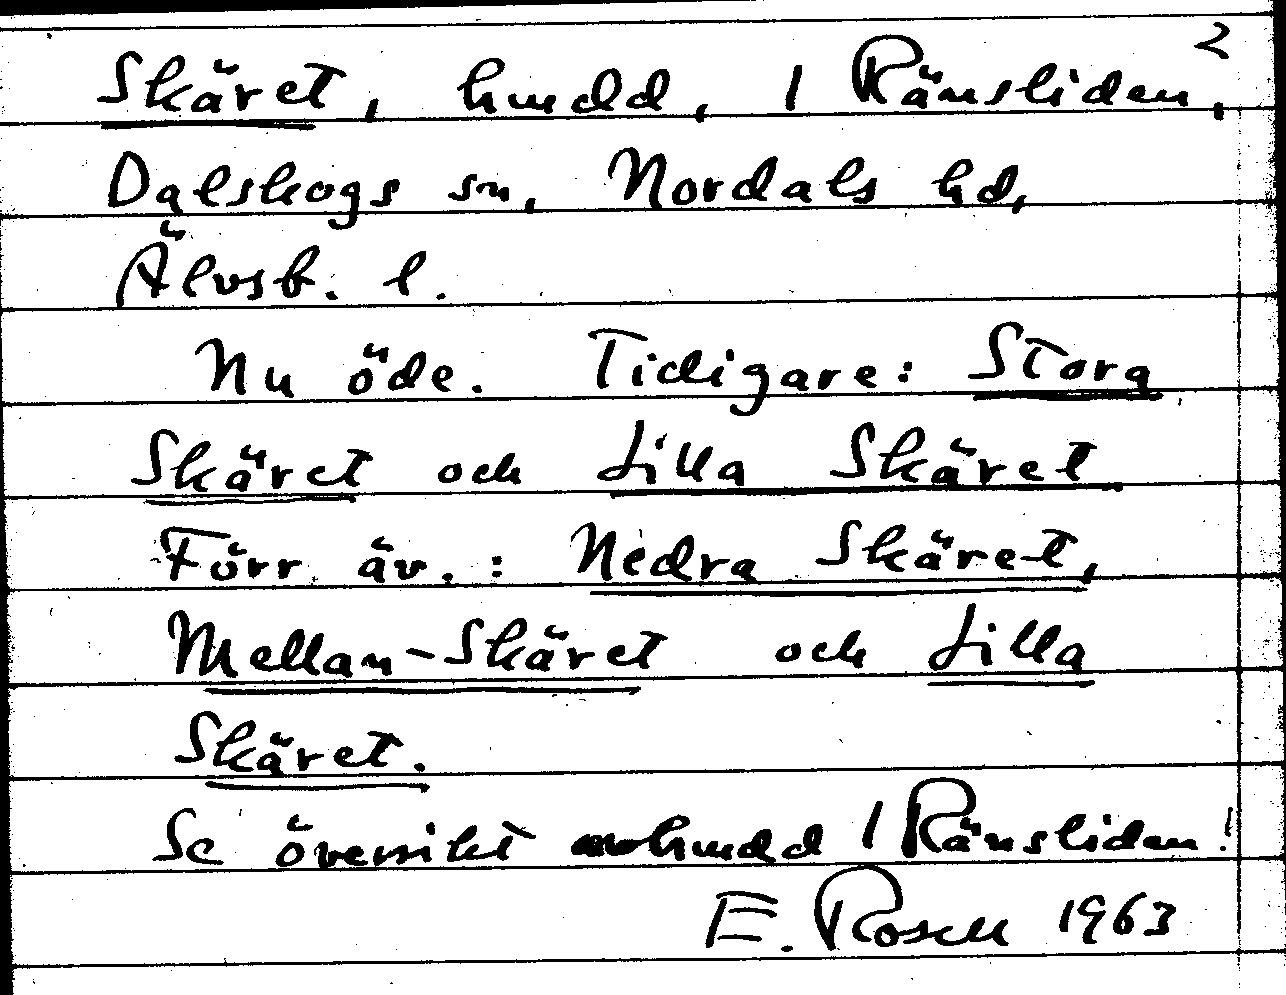 2
Skäret, hmdd, 1 Ränsliden,
Dalskogs sn, Nordals hd,
Älvsb. l.
Nu öde. Tidigare: Stora
Skäret och Lilla Skäret
Förr äv.: Nedra Skäret,
Mellan-Skäret och Lilla
Skäret.
Se översikt hmdd 1 Ränsliden!
E. Rosell 1963